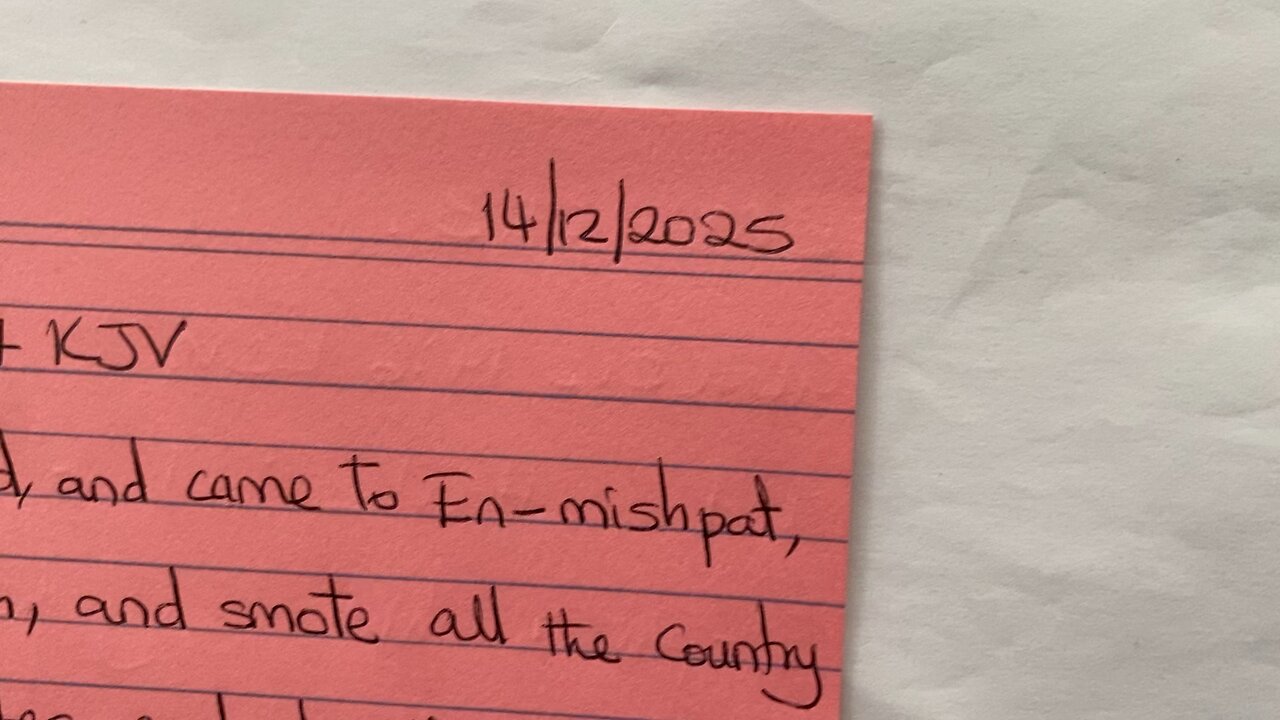 14/12/2025
KJV
and came to En-mishpat,
and smote all the Country